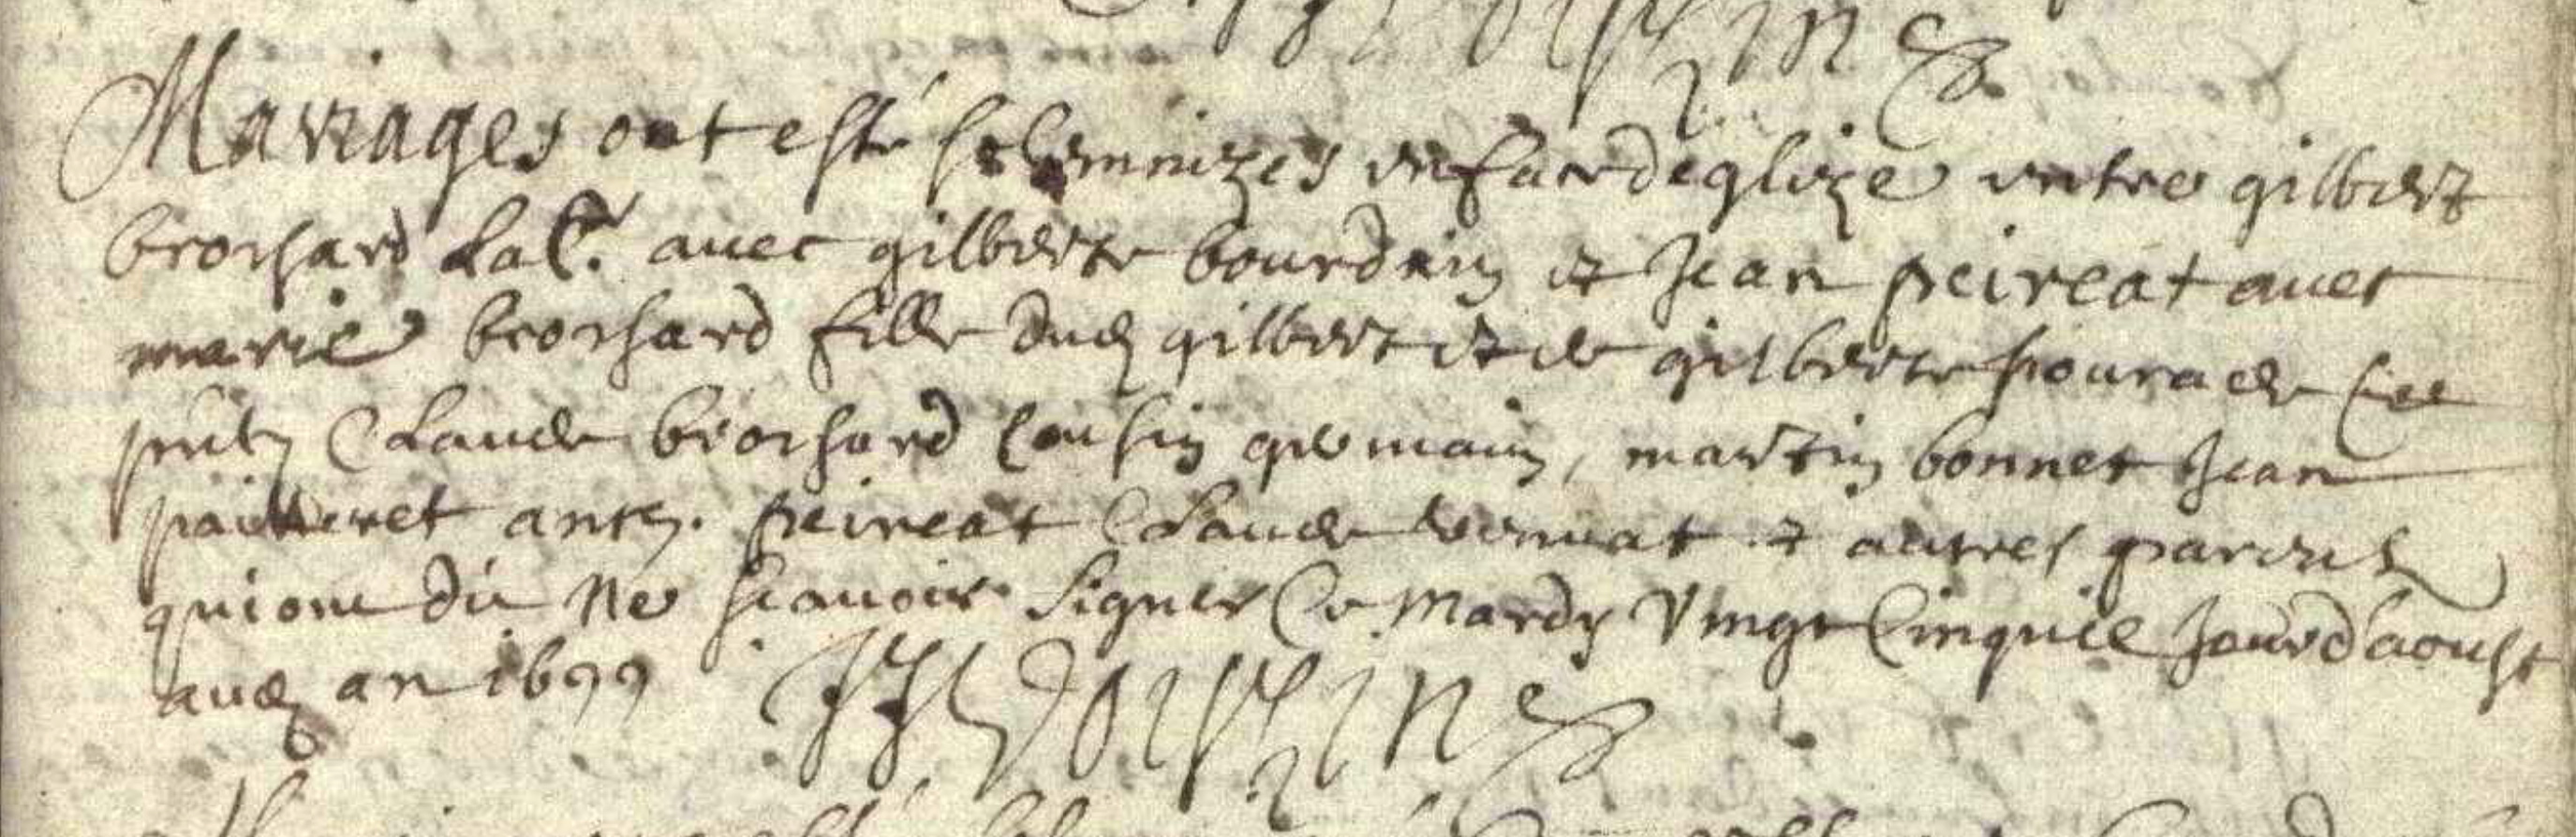 Mariages ont esté solemnizés en face deglize entre gilbert
brochard Lab.r avec gilberte bourdein et Jean peireat avec
marie brochard fille dud gilbert et de gilberte
pntz Claude brochard cousin germain, martin bonnet Jean
anth. peireat Claude et autres parents
qui ont dit Ne scavoir signer Ce Mardy Vingt Cinquie Jour daoust
aud an 1699